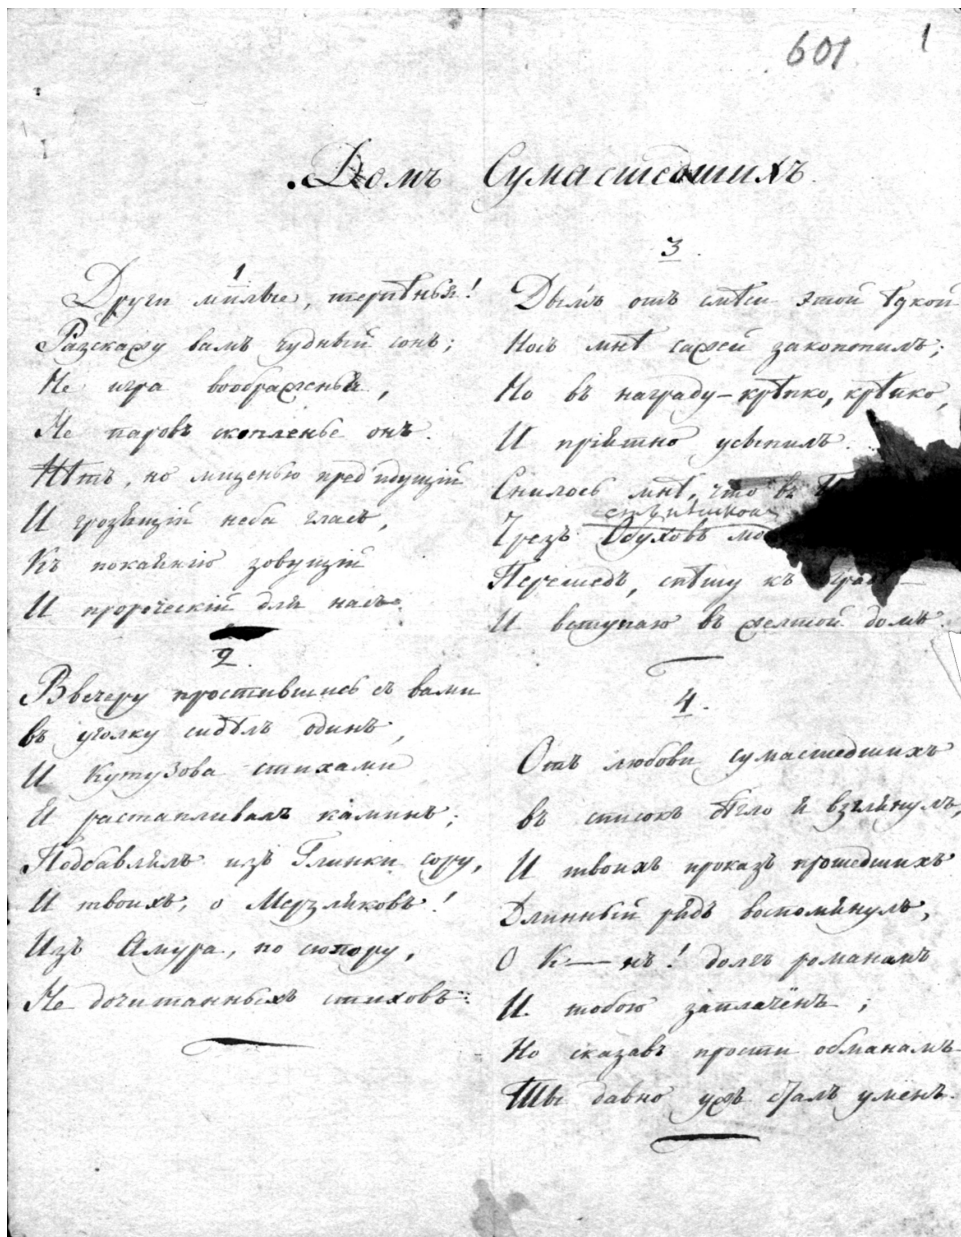 601
1
Домъ Сумасшедшихъ.
1
Други милые, терпѣнья!
Разскажу вамъ чудный сонъ;
Не игра воображенья,
Не паровъ скопленье онъ.
Нѣтъ, но мщенью предъидущій
И грозящій неба гласъ,
Къ покаянію зовущій
И пророческій для насъ.
2.
Ввечеру простившись съ вами
въ уголку сидѣлъ одинъ,
И Кутузова стихами
Я растапливалъ каминъ;
Подбавлялъ изъ Глинки сору,
И твоихъ, о Мерзляковъ!
Изъ Амура, по сю пору,
Не дочитанныхъ стиховъ.
3.
Дымъ отъ смѣси этой ѣдкой
Носъ мнѣ сажей закоптилъ;
Но въ награду – крѣпко, крѣпко,
И пріятно усыпилъ.
Снилось мнѣ, что въ
Чрезъ Обуховъ
Перешедъ, спѣшу къ
И вступаю въ желтой домъ.
4.
Отъ любови сумасшедшихъ
въ списокъ бѣгло я взглянулъ,
И твоихъ проказъ прошедшихъ
Длинный рядъ воспомянулъ,
О К — нъ! долгъ романамъ
И тобою заплачёнъ;
Но сказавъ прости обманамъ
Ты давно ужъ сталъ уменъ.